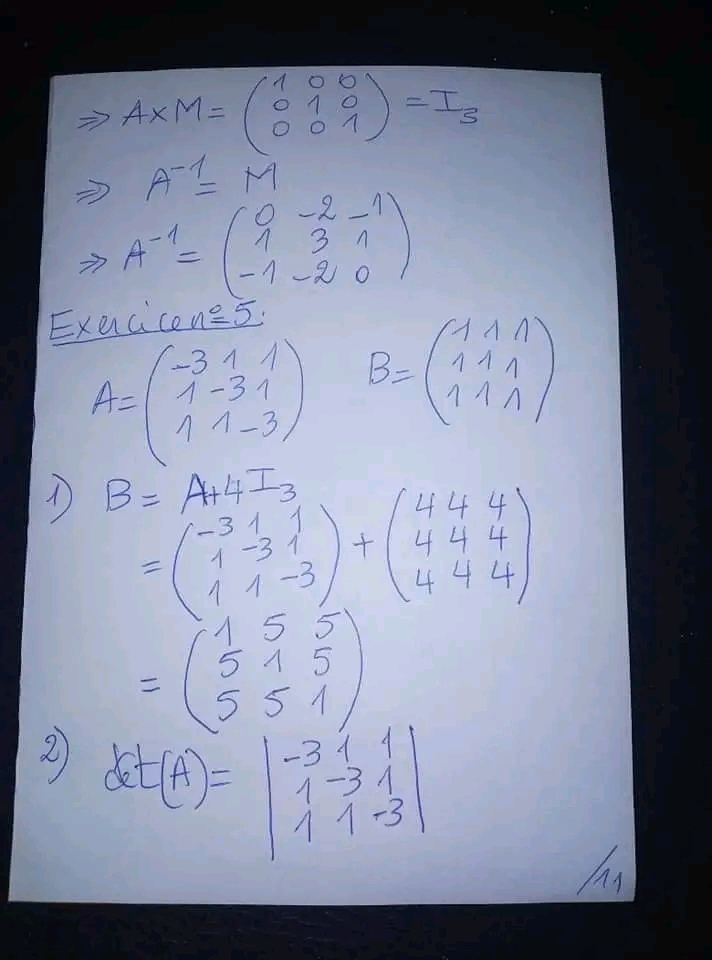 ⇒ A×M = (1 0 0
0 1 0
0 0 1) = I₃
⇒ A⁻¹ = M
⇒ A⁻¹ = (0 -2 -1
1 3 1
-1 -2 0)
Exercice n°5:
A = (-3 1 1
1 -3 1
1 1 -3) B = (1 1 1
1 1 1
1 1 1)
1) B = A+4I₃
= (-3 1 1
1 -3 1
1 1 -3) + (4 4 4
4 4 4
4 4 4)
= (1 5 5
5 1 5
5 5 1)
2) det(A) = |-3 1 1
1 -3 1
1 1 -3|
/11